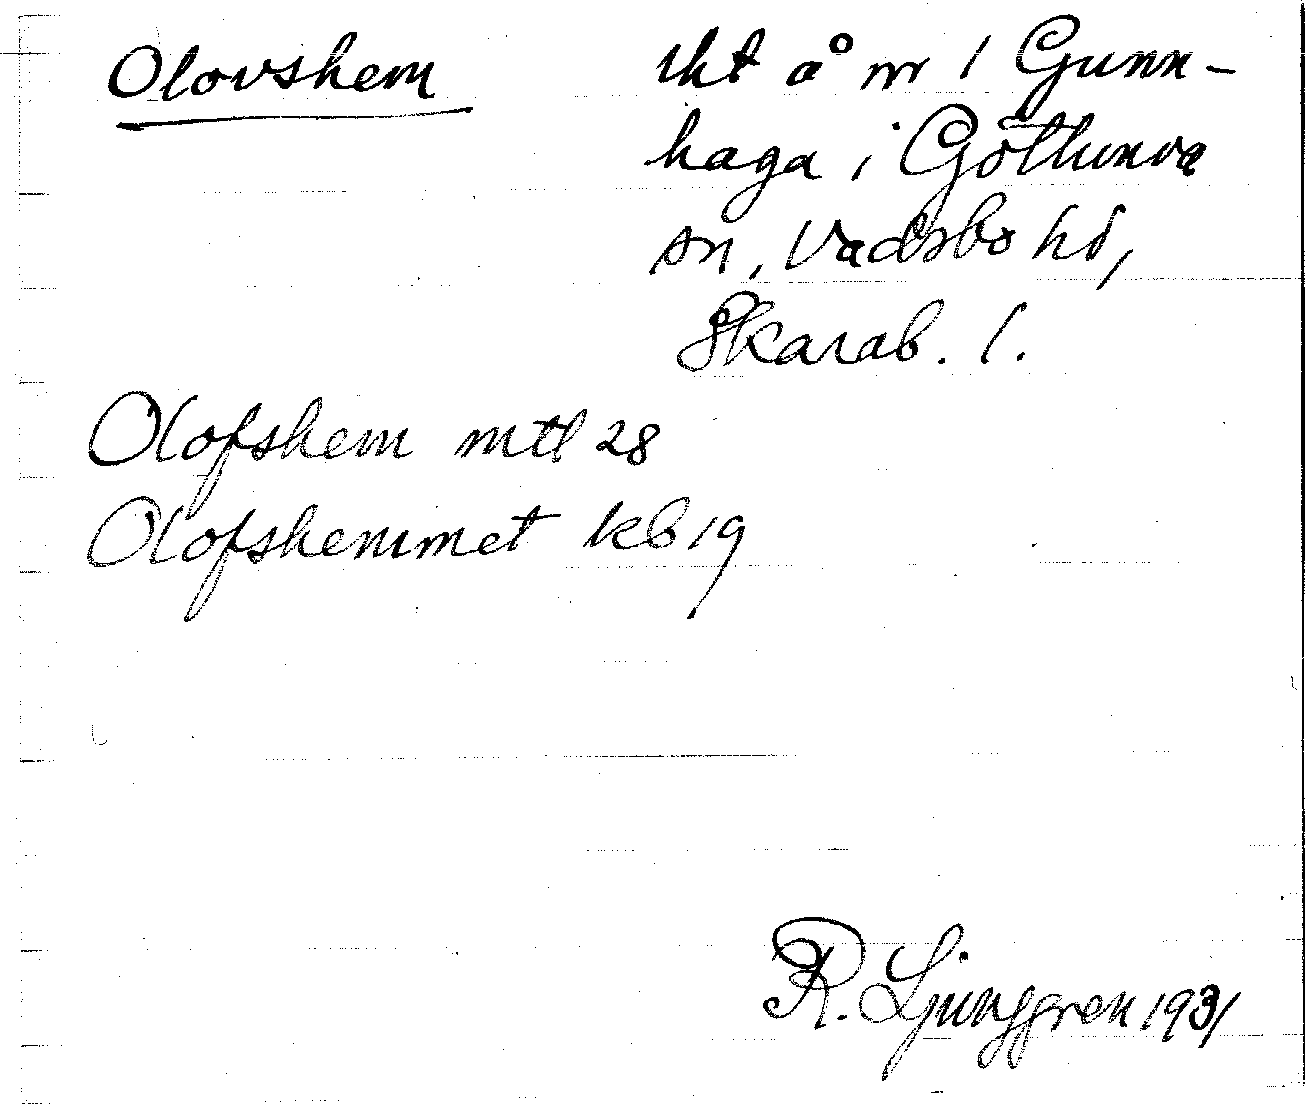 Olovshem
tkt å nr 1 Gunn-
haga i Götlunda
sn, Vadsbo hd,
Skarab. l.
Olofshem mtl 28
Olofshemmet kb 19
R. Ljunggren 1931